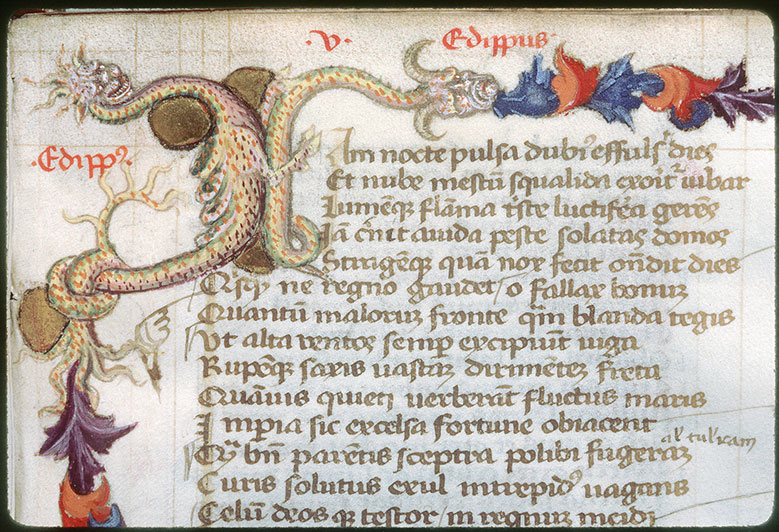 ·V· Edippus·
·Edipp9·
Iam nocte pulsa dubi9 effulsit dies
Et nube mestum squalida exoritur iubar
Lumenque flamma triste luctifera gerens
Iam cernit auida peste solatas domos
Stragemque quam nox fecit ondit dies
Qisqz ne regno gaudet o fallax bonum
Quantum malorum fronte qm blanda tegis
Vt alta ventos semper excipiunt iuga
Rupemque saxis uastam dirimentem freta
Quamuis quieti uerberant fluctus maris
Imperia sic excelsa fortune obiacent
Qm bn parentis sceptra polibi fugeram
al' tuleram
Curis solutus exul intrepid9 uagans
Celum deos qz testor in regnum incidi